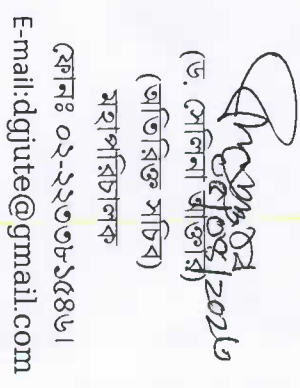 (ড. সেলিনা আক্তার)
(অতিরিক্ত সচিব)
মহাপরিচালক
ফোনঃ ০২-২২৩৩৮১৫৪৬।
E-mail:dgjute@gmail.com